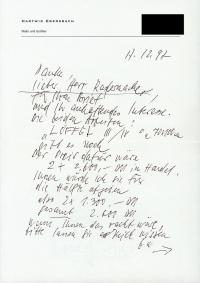 HARTWIG EBERSBACH
Maler und Grafiker
11.12.97
Danke
lieber Herr Radermacher
für Ihren Brief
und Ihr anhaltendes Interesse.
Die beiden Arbeiten
"LÖFFEL III / IV"
gibt es noch
Der Preis dafür wäre
2 + 2.600,- DM im Handel.
Ihnen würde ich sie für
die Hälfte abgeben
also 2x 1.300,- DM
gesamt 2.600 DM
Wenn Ihnen das recht wäre,
bitte Ihnen die